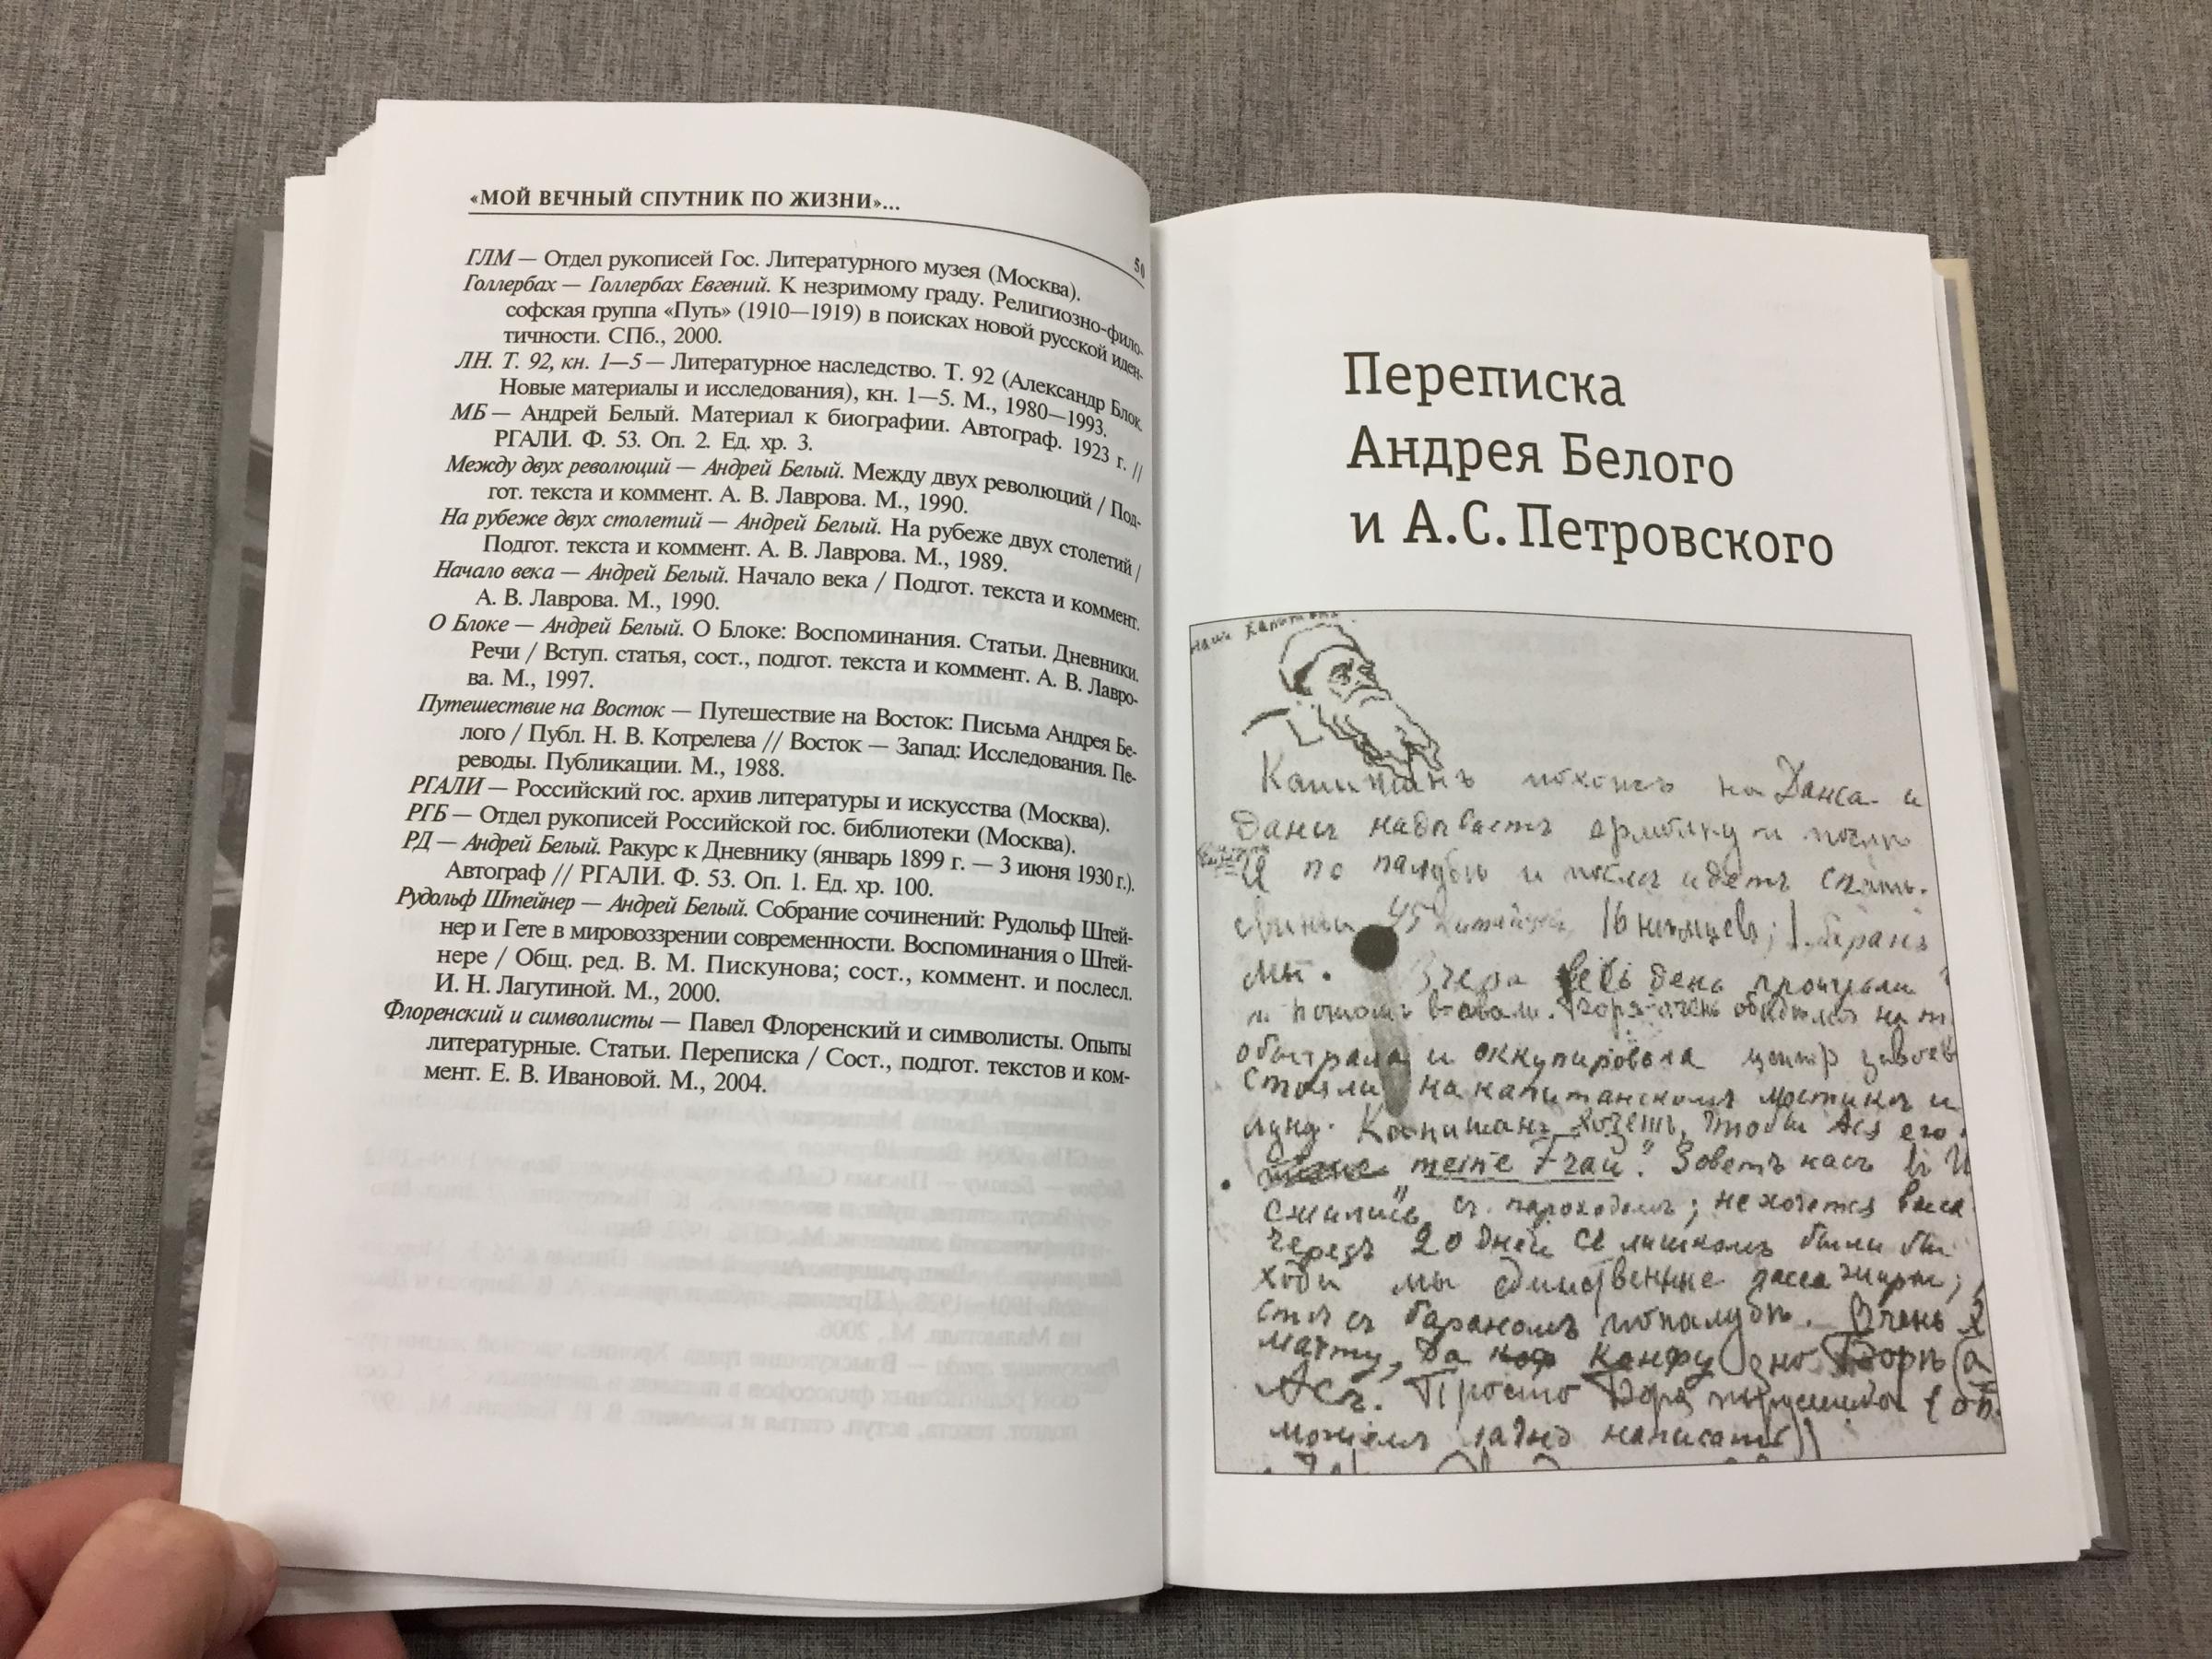 «МОЙ ВЕЧНЫЙ СПУТНИК ПО ЖИЗНИ»...
50
ГЛМ — Отдел рукописей Гос. Литературного музея (Москва).
Голлербах — Голлербах Евгений. К незримому граду. Религиозно-фило-
софская группа «Путь» (1910—1919) в поисках новой русской иден-
тичности. СПб., 2000.
ЛН. Т. 92, кн. 1—5 — Литературное наследство. Т. 92 (Александр Блок.
Новые материалы и исследования), кн. 1—5. М., 1980—1993.
МБ — Андрей Белый. Материал к биографии. Автограф. 1923 г. //
РГАЛИ. Ф. 53. Оп. 2. Ед. хр. 3.
Между двух революций — Андрей Белый. Между двух революций / Под-
гот. текста и коммент. А. В. Лаврова. М., 1990.
На рубеже двух столетий — Андрей Белый. На рубеже двух столетий /
Подгот. текста и коммент. А. В. Лаврова. М., 1989.
Начало века — Андрей Белый. Начало века / Подгот. текста и коммент.
А. В. Лаврова. М., 1990.
О Блоке — Андрей Белый. О Блоке: Воспоминания. Статьи. Дневники.
Речи / Вступ. статья, сост., подгот. текста и коммент. А. В. Лавро-
ва. М., 1997.
Путешествие на Восток — Путешествие на Восток: Письма Андрея Бе-
лого / Публ. Н. В. Котрелева // Восток — Запад: Исследования. Пе-
реводы. Публикации. М., 1988.
РГАЛИ — Российский гос. архив литературы и искусства (Москва).
РГБ — Отдел рукописей Российской гос. библиотеки (Москва).
РД — Андрей Белый. Ракурс к Дневнику (январь 1899 г. — 3 июня 1930 г.).
Автограф // РГАЛИ. Ф. 53. Оп. 1. Ед. хр. 100.
Рудольф Штейнер — Андрей Белый. Собрание сочинений: Рудольф Штей-
нер и Гете в мировоззрении современности. Воспоминания о Штей-
нере / Общ. ред. В. М. Пискунова; сост., коммент. и послесл.
И. Н. Лагутиной. М., 2000.
Флоренский и символисты — Павел Флоренский и символисты. Опыты
литературные. Статьи. Переписка / Сост., подгот. текстов и ком-
мент. Е. В. Ивановой. М., 2004.
Переписка
Андрея Белого
и А.С. Петровского
Капитанъ похожъ на Данса и
Дансъ надѣваетъ ермолку и
по палубѣ и идетъ спать.
45 16 нѣмцевъ; 1 баранъ
мы. Вчера весь день
и потомъ очень
и оккупировала центр
стояли на капитанскомъ мостикѣ и
луну. Капитанъ хочетъ, чтобы Ася его
meine Frau". Зоветъ насъ
съ пароходомъ; не хочется
черезъ 20 дней слишкомъ были бы
мы единственные пассажиры;
съ бараномъ по палубѣ. Очень
мачту, да но Борѣ (а
Асѣ. Просто Боря
можемъ написать))